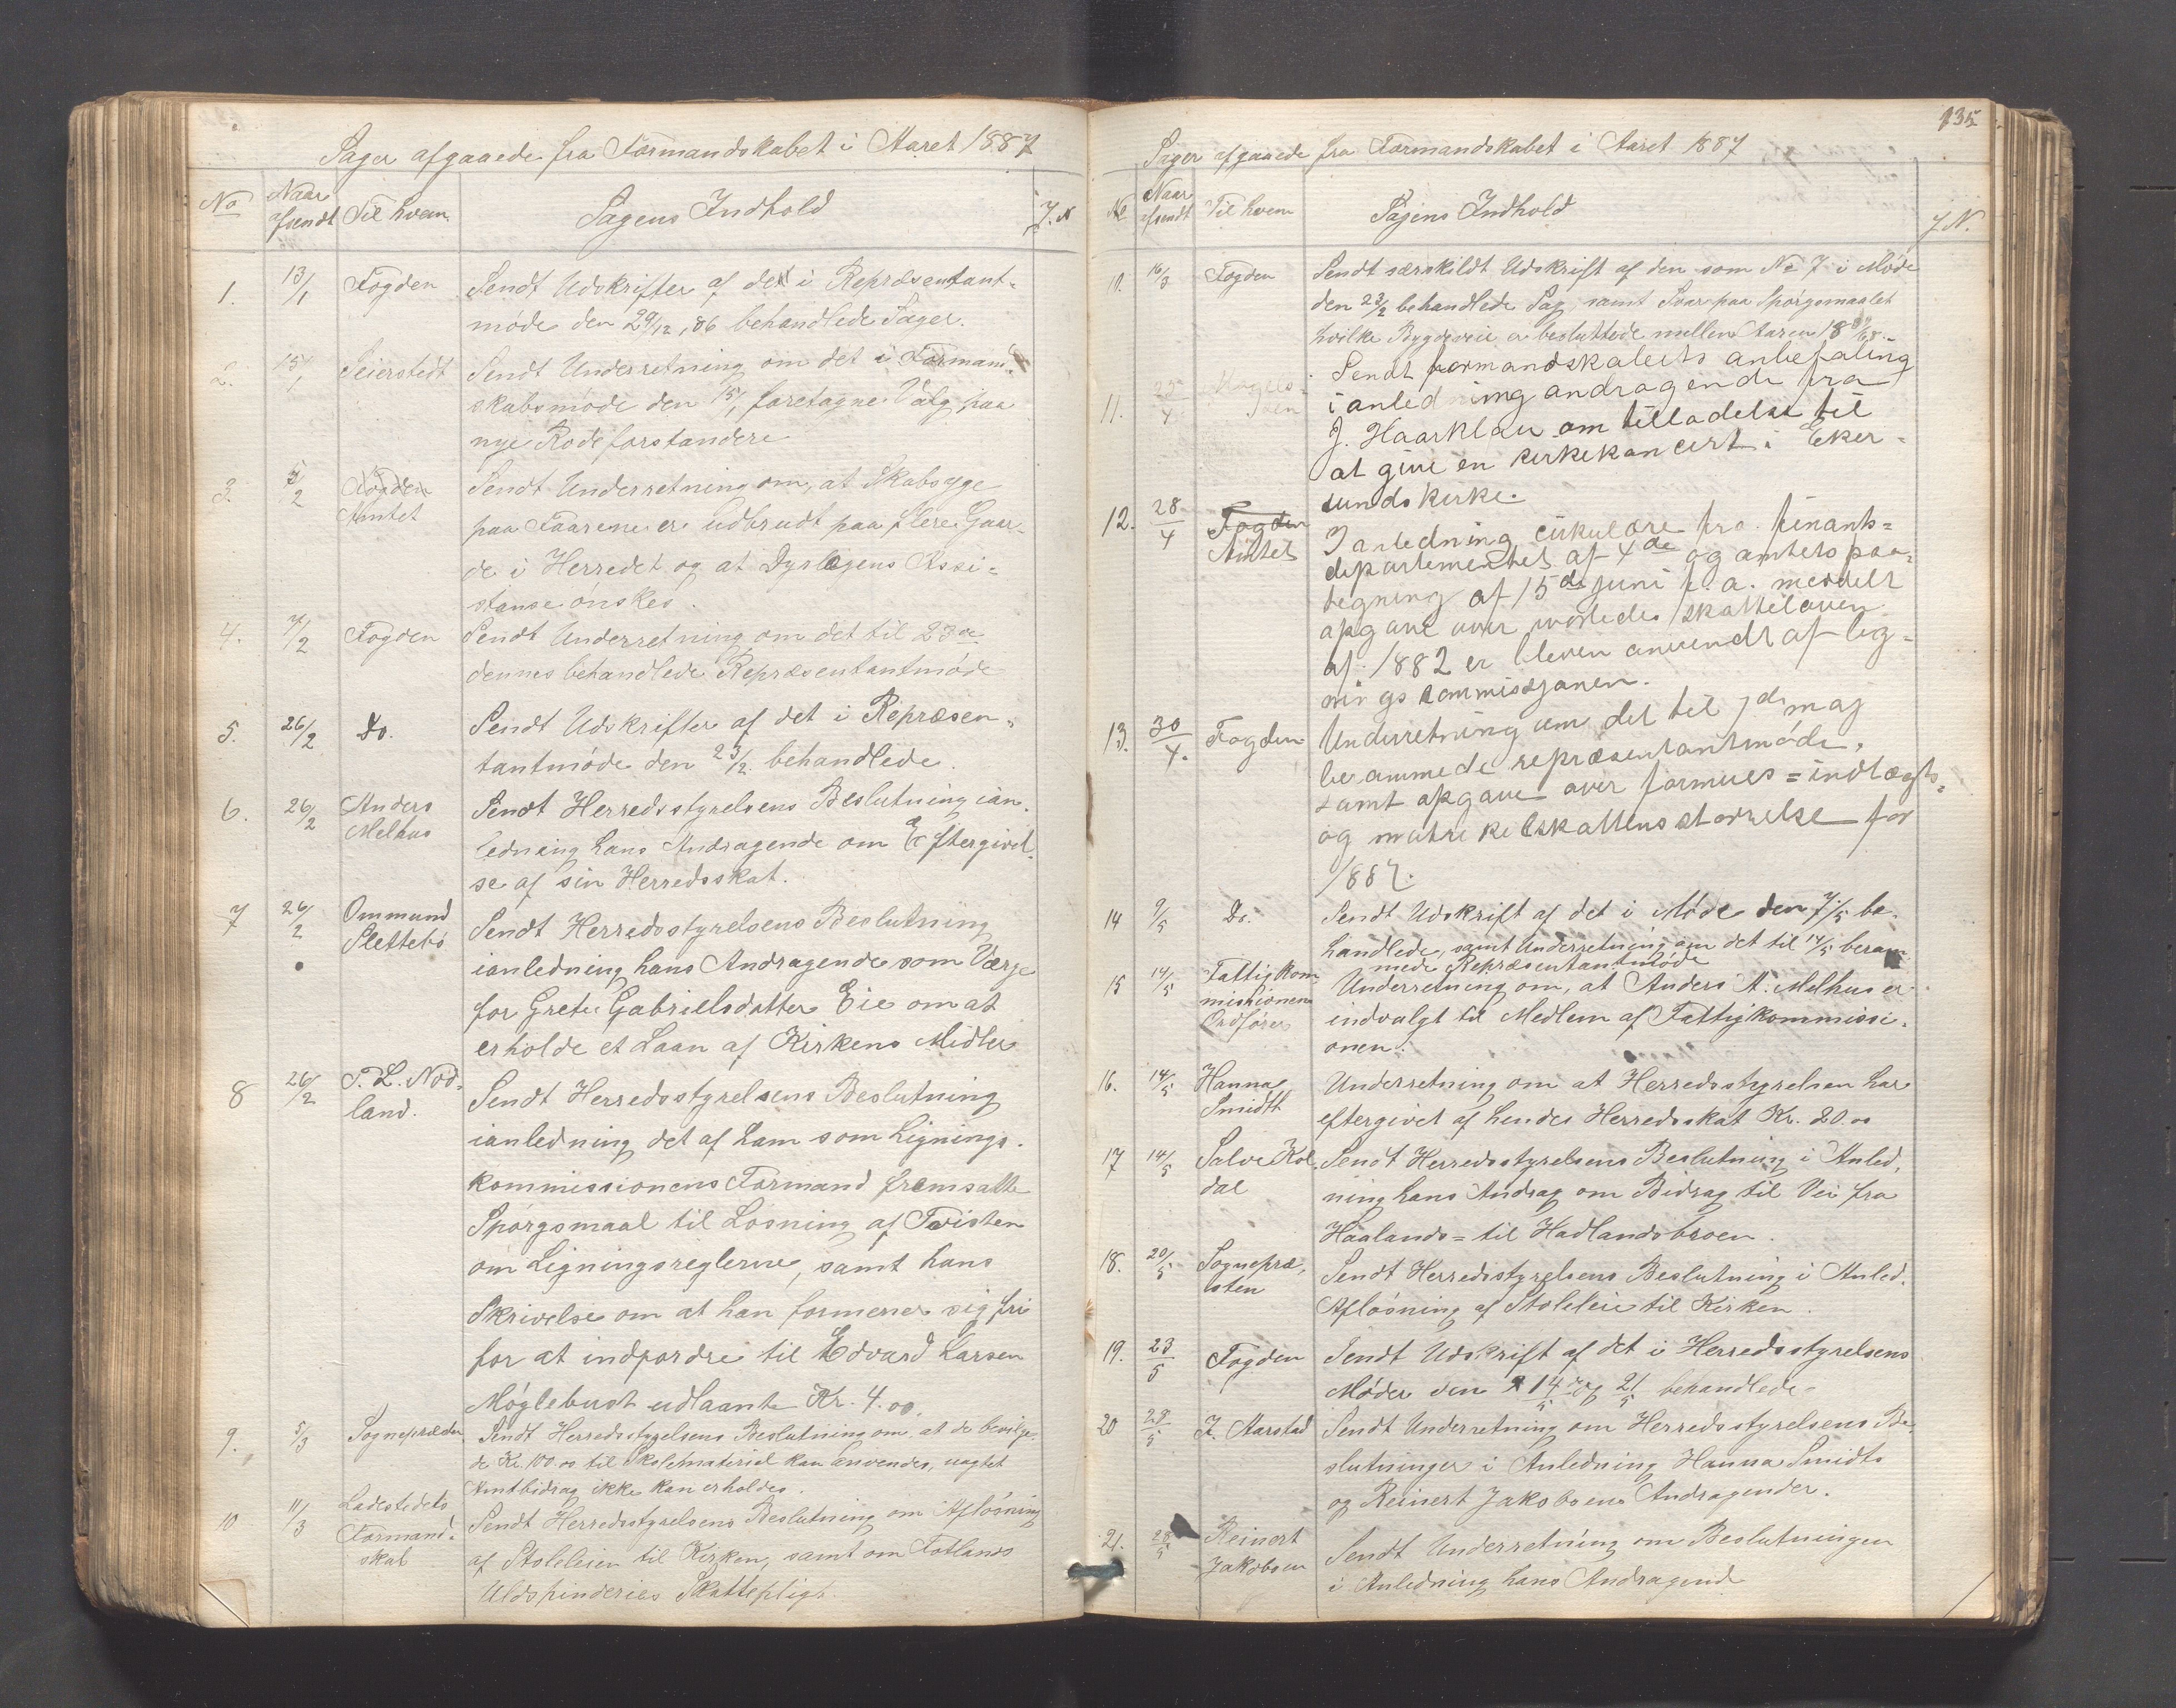 Sager afgaaede fra Formandskabet i Aaret 1887
No
Naar afsendt
Til hvem
Sagens Indhold
J.N
1. 13/1 Fogden Sendt Udskrifter af det i Repræsentant-
møde den 29/12, 86 behandlede Sager.
2. 15/1 Seierstedt Sendt Underretning om det i Formand-
skabsmøde den 15/1 foretagne Valg paa
nye Rodeforstandere
3. 5/2 Fogden Sendt Underretning om, at Skabsyge
Amtet paa Faarene er Udbrudt paa flere Gaar-
de i Herredet og at Dyrlægens Assi-
stanse ønskes.
4. 7/2 Fogden Sendt Underretning om det til 23de
dennes behandlede Repræsentantmøde
5. 26/2 Do. Sendt Udskrifter af det i Repræsen-
tantmøde den 23/2 behandlede.
6. 26/2 Anders Sendt Herredsstyrelsens Beslutning ian-
Melhus ledning hans Andragende om Eftergivel-
se af sin Herredsskat.
7 26/2 Ommund Sendt Herredsstyrelsens Beslutning
Slettebø ianledning hans Andragende som Værge
for Grete Gabrielsdatter Eie om at
erholde et Laan af Kirkens Midler
8 26/2 T. L. Nod- Sendt Herredsstyrelsens Beslutning
land. ianledning det af ham som Lignings-
kommissionens Formand fremsatte
Spørgsmaal til Løsning af Tvisten
om Ligningsreglerne, samt hans
Skrivelse om at han formener sig fri
for at indfordre til Edvard Larsen
Møglebust udlaante Kr. 4.00.
9. 5/3 Sognepræsten Sendt Herredsstyrelsens Beslutning om, at de bevilge-
de Kr. 100.00 til Skolemateriel kan anvendes, uagtet
Amtbidrag ikke kan erholdes.
10 11/3 Ladestedets Sendt Herredsstyrelsens Beslutning om Afløsning
Formand- af Stoleleien til Kirken, samt om Fotlands
skab Uldspinderies Skattepligt.
135
Sager afgaaede fra Formandskabet i Aaret 1887
No
Naar afsendt
Til hvem
Sagens Indhold
J.N.
10. 16/3 Fogden Sendt særskildt Udskrift af den som No 7 i Møde
den 23/2 behandlede Sag, samt Svar paa Spørgsmaalet
hvilke Bygdeveie er besluttede mellem Aarene
Sendt formandskabets anbefaling
11. 25/4 i anledning andragende fra
J. Haarklau om tilladelse til
at give en kirkekoncert i Eker-
sunds kirke.
12. 28/4 Fogden I anledning cirkulære fra finants-
Amtet departementet af 4de og amtets paa-
tegning af 15de juni f.a. meddelt
opgave over hvorledes skatteloven
af 1882 er bleven anvendt af lig-
nings kommissjonen.
13. 30/4. Fogden Underretning om det til 7de maj
berammede repræsentantmøde,
samt opgave over formues = indtægts-
og matrikelskattens størrelse for
1887.
14 9/5 Do. Sendt Udskrift af det i Møde den 7/5 be-
handlede, samt Underretning om det til 14/5 beram-
mede Repræsentantmøde
15 14/5 Fattigkom- Underretning om, at Anders A. Melhus er
missionens indvalgt til Medlem af Fattigkommissi-
Ordfører onen.
16. 14/5 Hanna Underretning om at Herredsstyrelsen har
Smidth eftergivet af hendes Herredsskat Kr. 20.00
17 14/5 Salve Kol- Sendt Herredsstyrelsens Beslutning i Anled-
dal ning hans Andrag om Bidrag til Vei fra
Haalands= til Hadlandsbroen.
18. 20/5 Sognepræ- Sendt Herredsstyrelsens Beslutning i Anled.
sten Afløsning af Stoleleie til Kirken.
19. 23/5 Fogden Sendt Udskrift af det i Herredsstyrelsens
Møder den 14/5 og 21/5 behandlede-
20 23/5 J. Aarstad Sendt Underretning om Herredsstyrelsens Be-
slutninger i Anledning Hanna Smidts
og Reinert Jakobsens Andragender.
21. 28/5 Reinert Sendt Underretning om Beslutningen
Jakobsen i Anledning hans Andragende